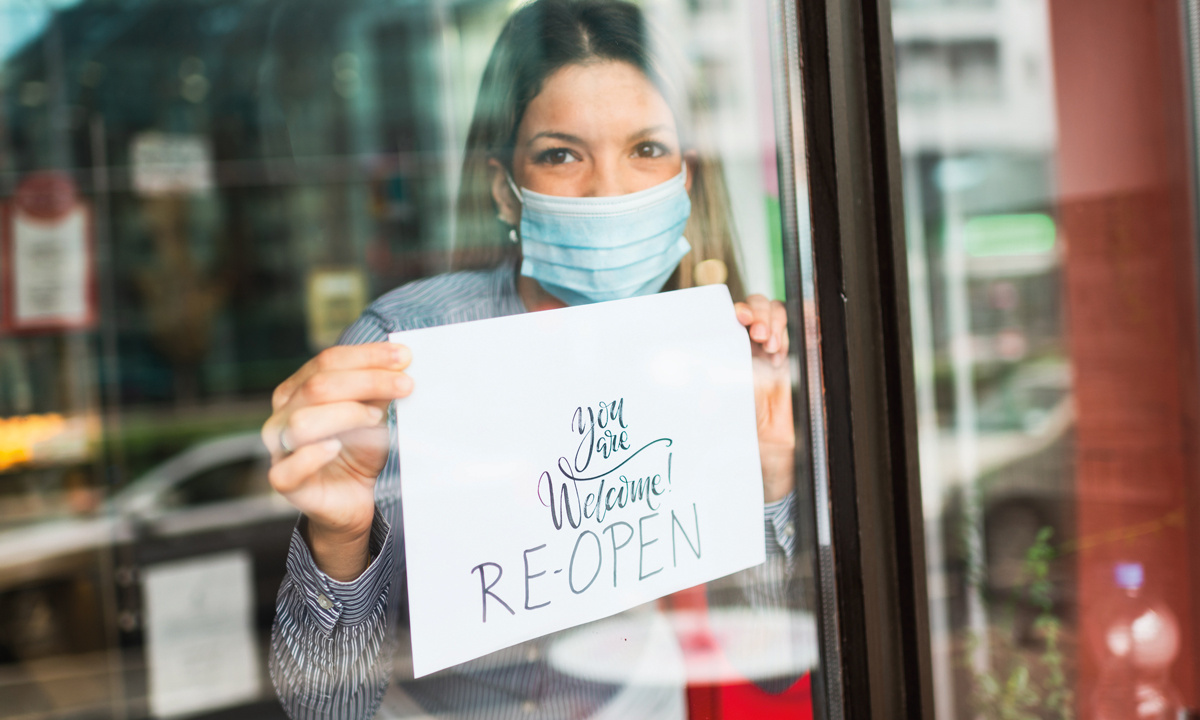 you
are
Welcome!
RE-OPEN